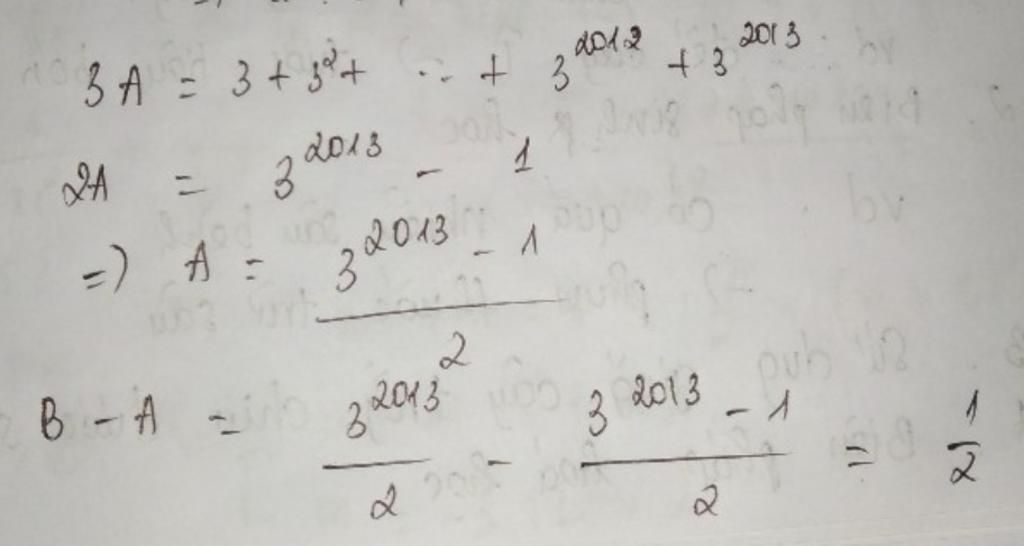 3A = 3 + 3² + ... + 3^2012 + 3^2013
2A = 3^2013 - 1
=) A = (3^2013 - 1)/2
B - A = 3^2013/2 - (3^2013 - 1)/2 = 1/2